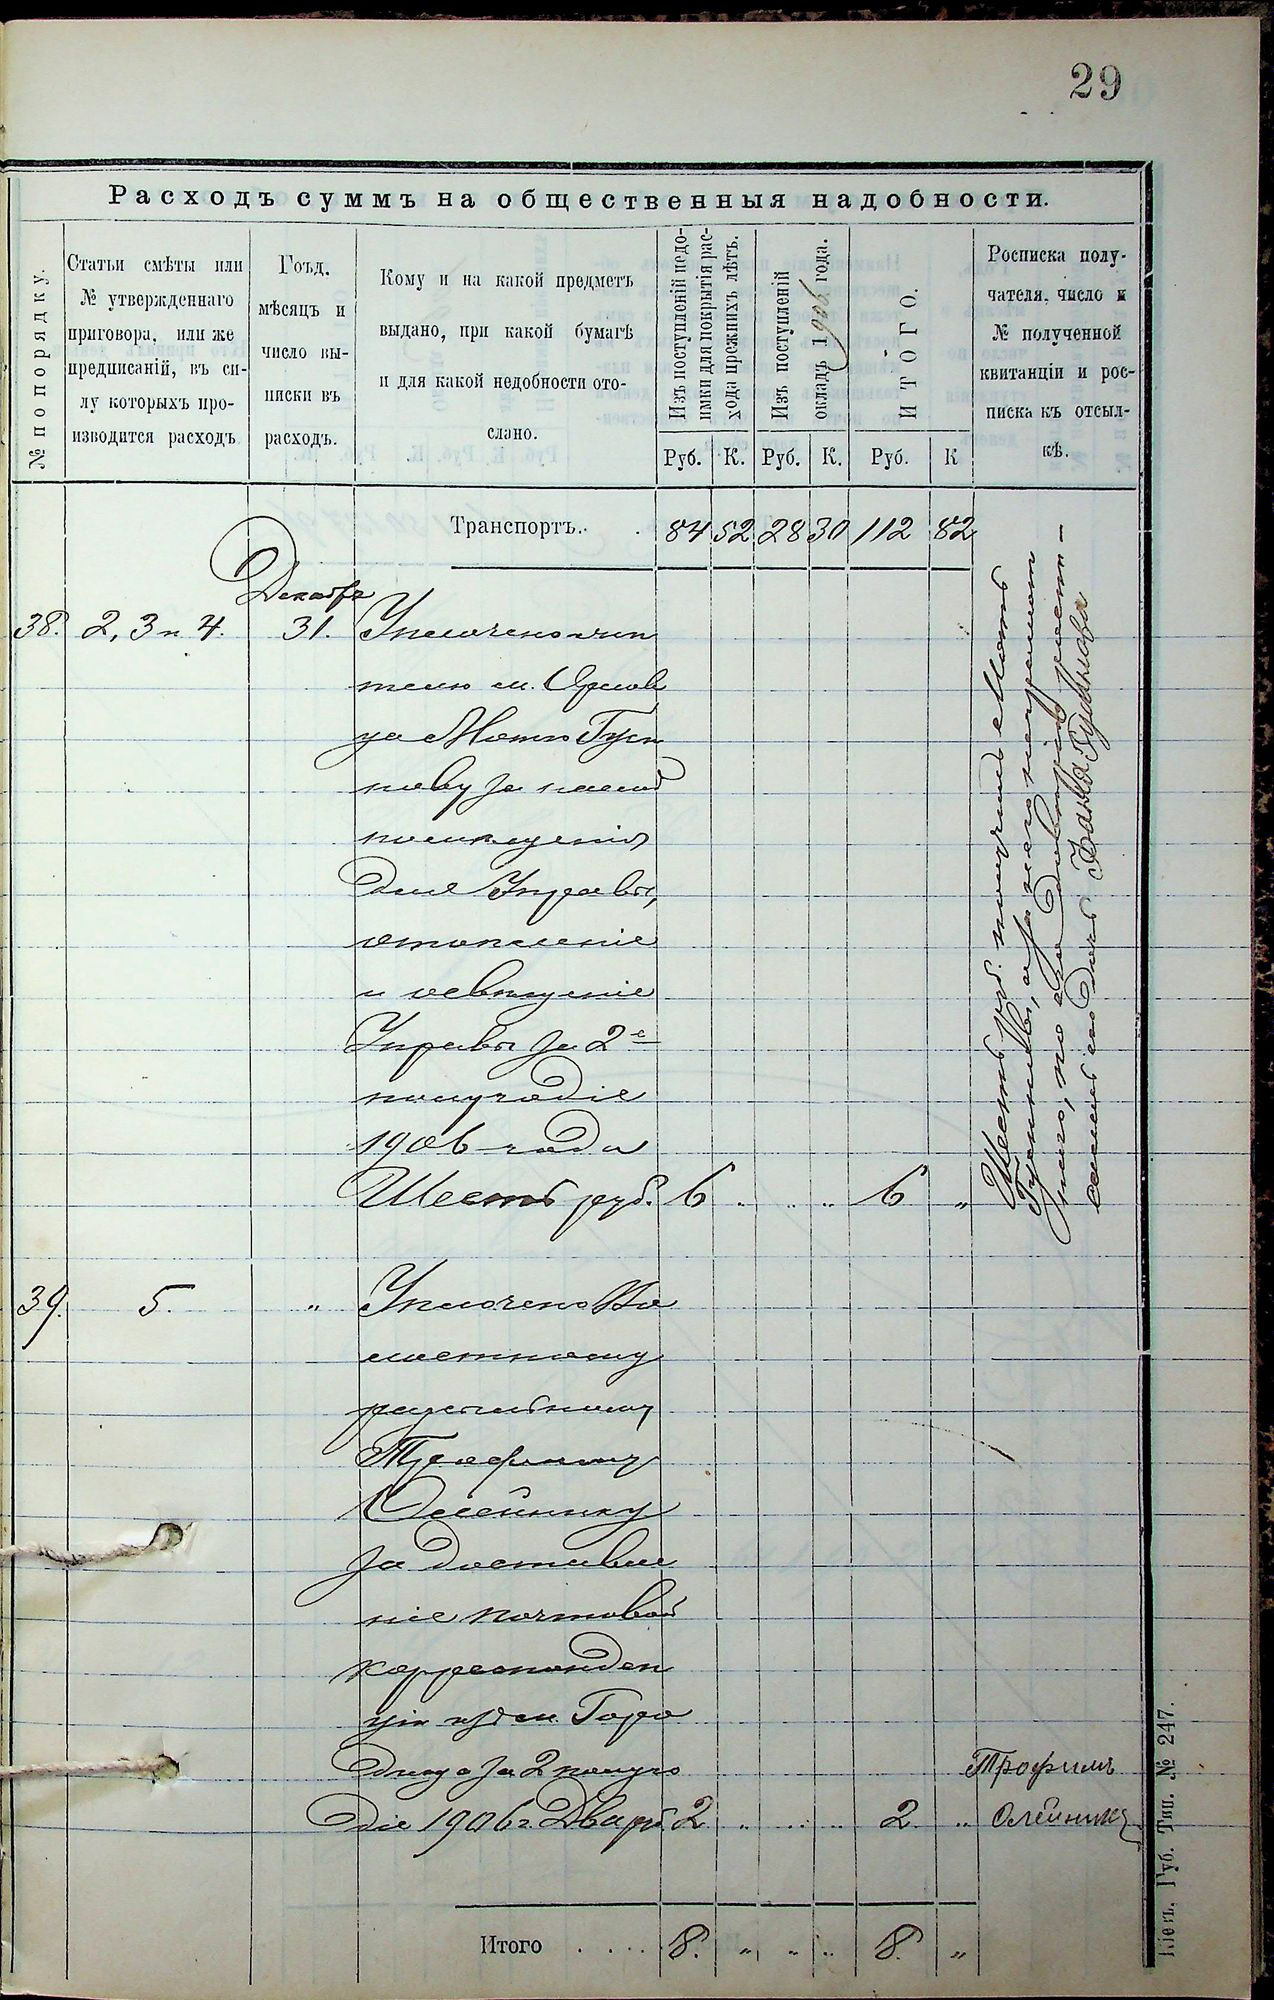 29
Расходъ суммъ на общественныя надобности.
№ по порядку.
Статьи смѣты или
№ утвержденнаго
приговора, или же
предписаній, въ си-
лу которыхъ про-
изводится расходъ
Гоъд.
мѣсяцъ и
число вы-
писки въ
расходъ.
Кому и на какой предметъ
выдано, при какой бумагѣ
и для какой недобности ото-
слано.
Изъ поступленій недо-
имки для покрытія рас-
хода прежнихъ лѣтъ.
Изъ поступленій
окладъ 1906 года.
ИТОГО.
Росписка полу-
чателя, число и
№ полученной
квитанціи и рос-
писка къ отсыл-
кѣ.
Руб. К. Руб. К. Руб. К
Транспортъ. . 84 52 28 30 112 82
Декабря
38. 2, 3 и 4. 31. Уплочено жи
телю м.
ца
нову за наемъ
помѣщенія
для Управы,
отопленіе
и освѣщеніе
Управы за 2е
полугодіе
1906 года
Шесть руб. 6 " " " 6 "
Шесть руб. получилъ
а за него неграмот
наго, по его
39. 5. " Уплочено
разсыльному
Трофиму
Олейнику
за доставле
ніе почтовой
корреспонден
ціи изъ м. Горо
дища за 2 полуго
діе 1906 г. Два руб. 2 " " " 2 "
Трофимъ
Олейникъ
Итого . . . . 8. " " " 8. "
Кіевъ, Губ. Тип. № 247.